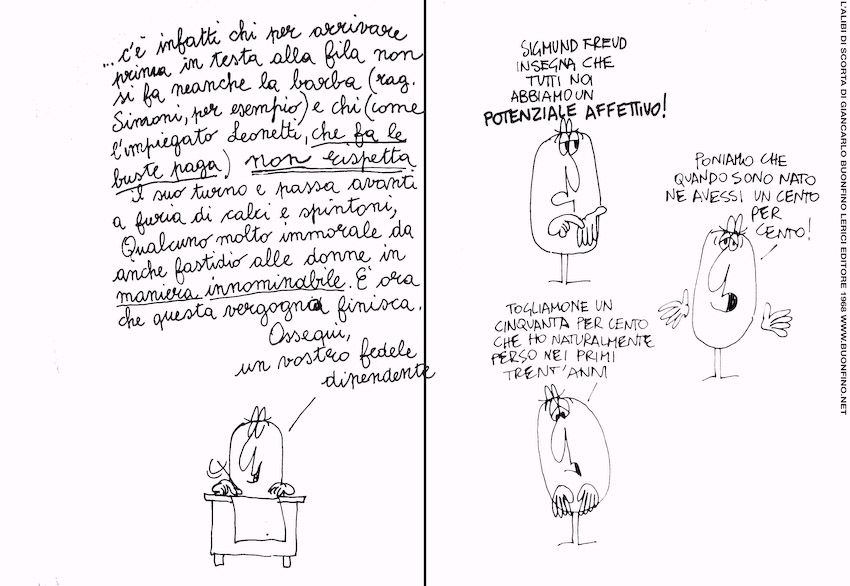 ... c'è infatti chi per arrivare
prima in testa alla fila non
si fa neanche la barba (rag.
Simoni, per esempio) e chi (come
l'impiegato Leonetti, che fa le
buste paga) non rispetta
il suo turno e passa avanti
a furia di calci e spintoni,
Qualcuno molto immorale da
anche fastidio alle donne in
maniera innominabile. È ora
che questa vergogna finisca.
Ossequi,
un vostro fedele
dipendente
SIGMUND FREUD
INSEGNA CHE
TUTTI NOI
ABBIAMO UN
POTENZIALE AFFETTIVO!
PONIAMO CHE
QUANDO SONO NATO
NE AVESSI UN CENTO
PER
CENTO!
TOGLIAMONE UN
CINQUANTA PER CENTO
CHE HO NATURALMENTE
PERSO NEI PRIMI
TRENT'ANNI
L'ALIBI DI SCORTA DI GIANCARLO BUONFINO LERICI EDITORE 1968 WWW.BUONFINO.NET